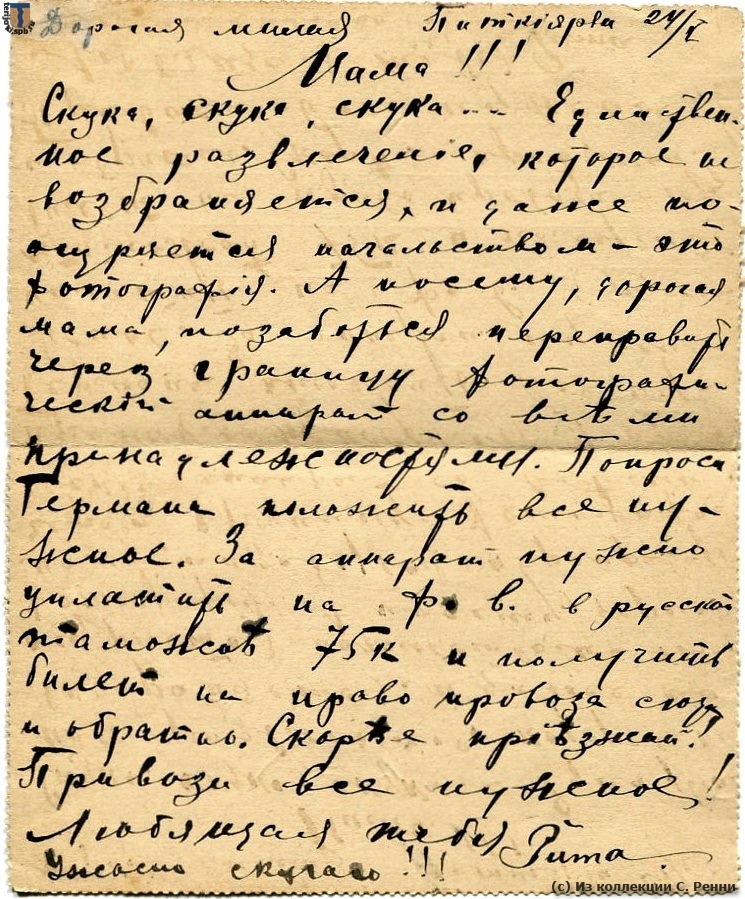 Дорогая милая Питкіярви 24/I
Мама!!!
Скука, скука, скука... Единствен-
ное развлеченіе, которое не
возбраняется, и даже по-
ощряется начальством – это
фотографія. А посему, дорогая
мама, позаботься переправить
через границу фотографи-
ческій аппарат со всѣми
принадлежностями. Попроси
Германа положить все ну-
жное. За аппарат нужно
уплатить на ф. в. в русской
таможнѣ 75к и получить
билет на право провоза сюда
и обратно. Скорѣе пріѣзжай!
Привози все нужное!
Любящая тебя Рита.
Ужасно скучаю!!!
terijoki.spb
(c) Из коллекции С. Ренни